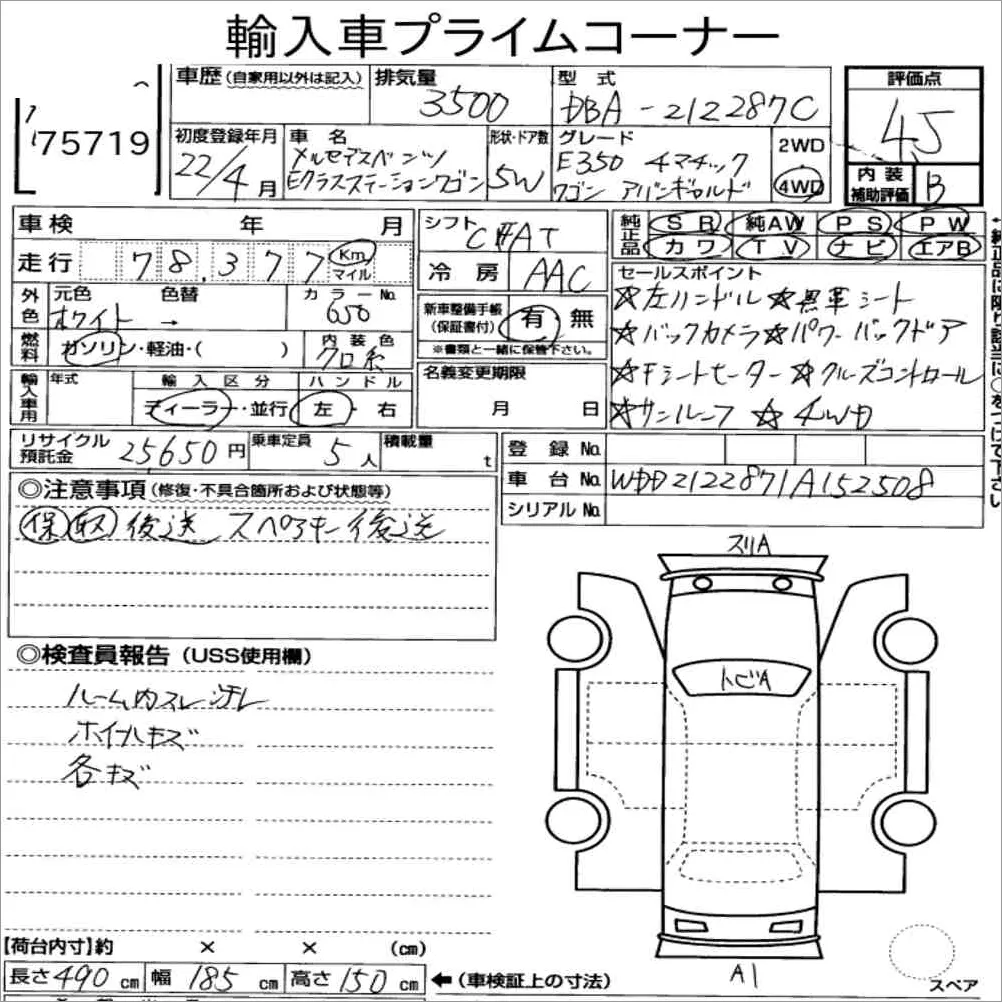 輸入車プライムコーナー
75719
車歴(自家用以外は記入)
排気量
3500
型式
DBA-212287C
評価点
4.5
初度登録年月
22/4月
車名
メルセデスベンツ
Eクラスステーションワゴン
形状・ドア数
5W
グレード
E350 4マチック
ワゴン アバンギャルド
2WD
4WD
内装
補助評価
B
車検 年 月
走行 78,377 Km
マイル
シフト
AT
冷房 AAC
純正品
SR 純AW PS PW
カワ TV ナビ エアB
外色
元色 色替
ホワイト →
カラーNo.
650
新車整備手帳
(保証書付)
有 無
※書類と一緒に保管下さい。
セールスポイント
☆左ハンドル ☆黒革シート
☆バックカメラ ☆パワーバックドア
☆Fシートヒーター ☆クルーズコントロール
☆サンルーフ ☆4WD
燃料
ガソリン・軽油・( )
内装色
クロ系
輸入車用
年式
輸入区分
ディーラー・並行
ハンドル
左・右
名義変更期限
月 日
リサイクル
預託金
25,650円
乗車定員
5人
積載量
t
登録No.
車台No. WDD2122871A152508
シリアルNo.
◎注意事項(修復・不具合箇所および状態等)
保 取 後送 スペアキー後送
◎検査員報告(USS使用欄)
ルーム内スレ汚レ
ホイールキズ
各キズ
スリA
トビA
A1
スペア
【荷台内寸】約 × × (cm)
長さ490cm 幅185cm 高さ150cm ←(車検証上の寸法)